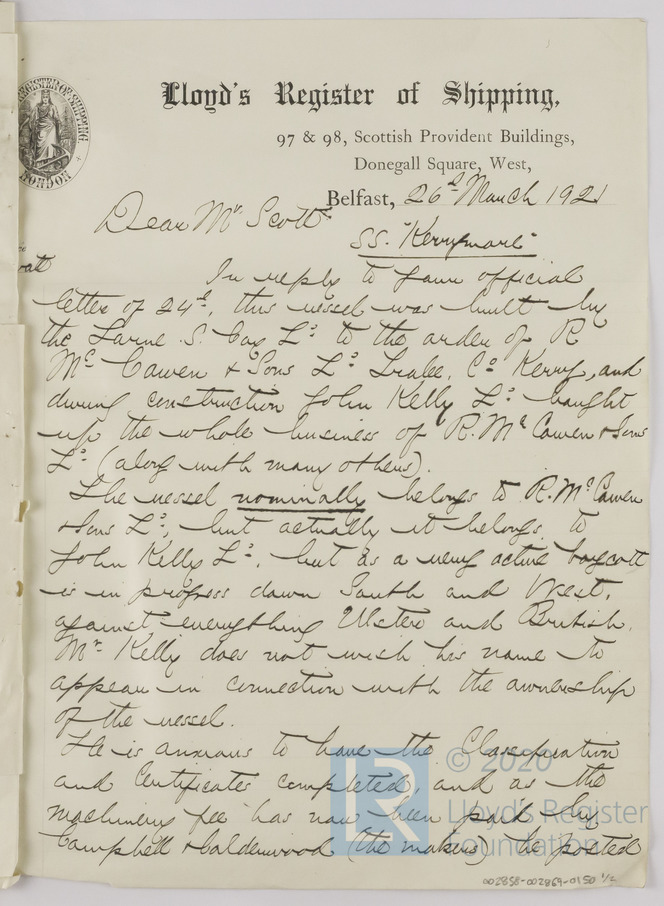 Lloyd's Register of Shipping,
97 & 98, Scottish Provident Buildings,
Donegall Square, West,
Belfast, 26th March 1921
REGISTER OF SHIPPING
LONDON
Dear Mr Scott
SS. "Kerrymore"
In reply to your official
letter of 24th, this vessel was built by
the Larne S. Coy Ld to the order of R
Mc Cowen & Sons Ld Tralee, Co Kerry, and
during construction John Kelly Ld bought
up the whole business of R. Mc Cowen & Sons
Ld (along with many others).
The vessel nominally belongs to R. Mc Cowen
& Sons Ld, but actually it belongs to
John Kelly Ld, but as a very active boycott
is in progress down South and West,
against everything Ulster and British,
Mr Kelly does not wish his name to
appear in connection with the ownership
of the vessel.
He is anxious to have the Classification
and Certificates completed, and as the
machinery fee has now been paid by
Campbell & Calderwood (the makers) he posted
© 2020
Lloyd's Register
Foundation
002858-002869-0150 1/2